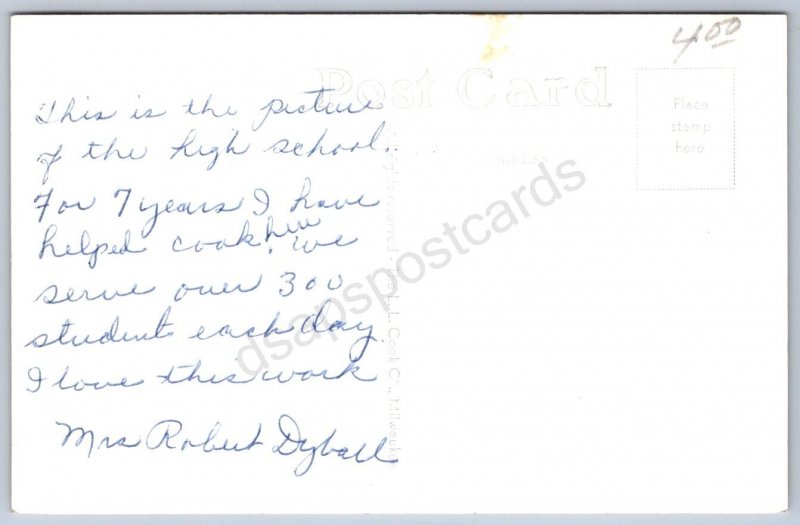 4.00
Post Card
Place
stamp
here
This is the picture
of the high school.
For 7 years I have
helped cook here. We
serve over 300
students each day.
I love this work
Mrs Robert Dyball
L. L. Cook Co., Milwaukee
dsapspostcards